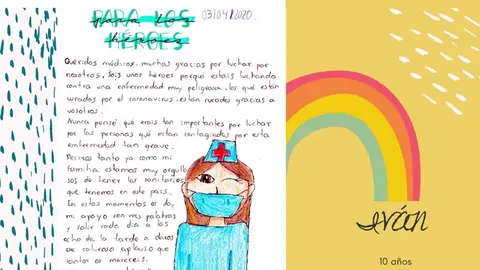 PARA LOS
HÉROES
03/04/2020
Queridos médicos, muchas gracias por luchar por
nosotros, sois unos héroes porque estais luchando
contra una enfermedad muy peligrosa, los que están
curados por el coronavirus, están curados gracias a
vosotros.
Nunca pensé que erais tan importantes por luchar
por las personas que estan contagiadas por esta
enfermedad tan grave.
Deciros tanto yo como mi
familia estamos muy orgullo
sos de tener los sanitarios
que tenemos en este pais.
En estos momentos os doy
mi apoyo con mis palabras
y salir cada día a las
ocho de la tarde a daros
ese caluroso aplauso que
tantos os mereceis.
Iván
10 años